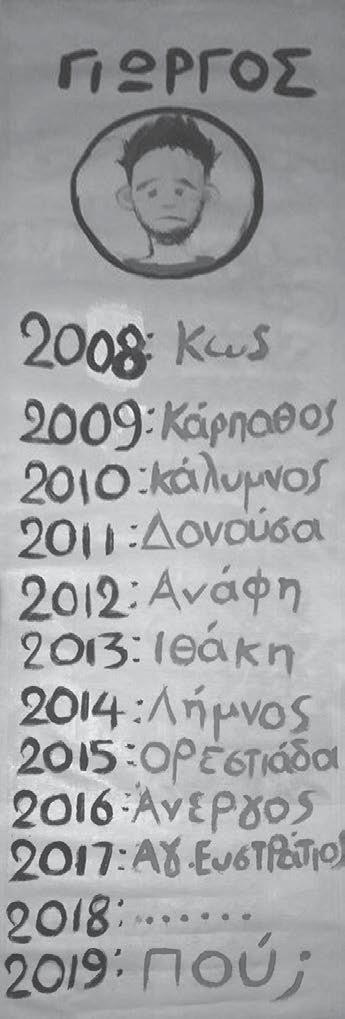 ΓΙΩΡΓΟΣ
2008: Κως
2009: Κάρπαθος
2010: κάλυμνος
2011: Δονούσα
2012: Ανάφη
2013: Ιθάκη
2014: Λήμνος
2015: ΟΡΕστιάδα
2016: Άνεργος
2017: ΑΓ. ΕυστΡάτιος
2018: .......
2019: ΠΟύ;